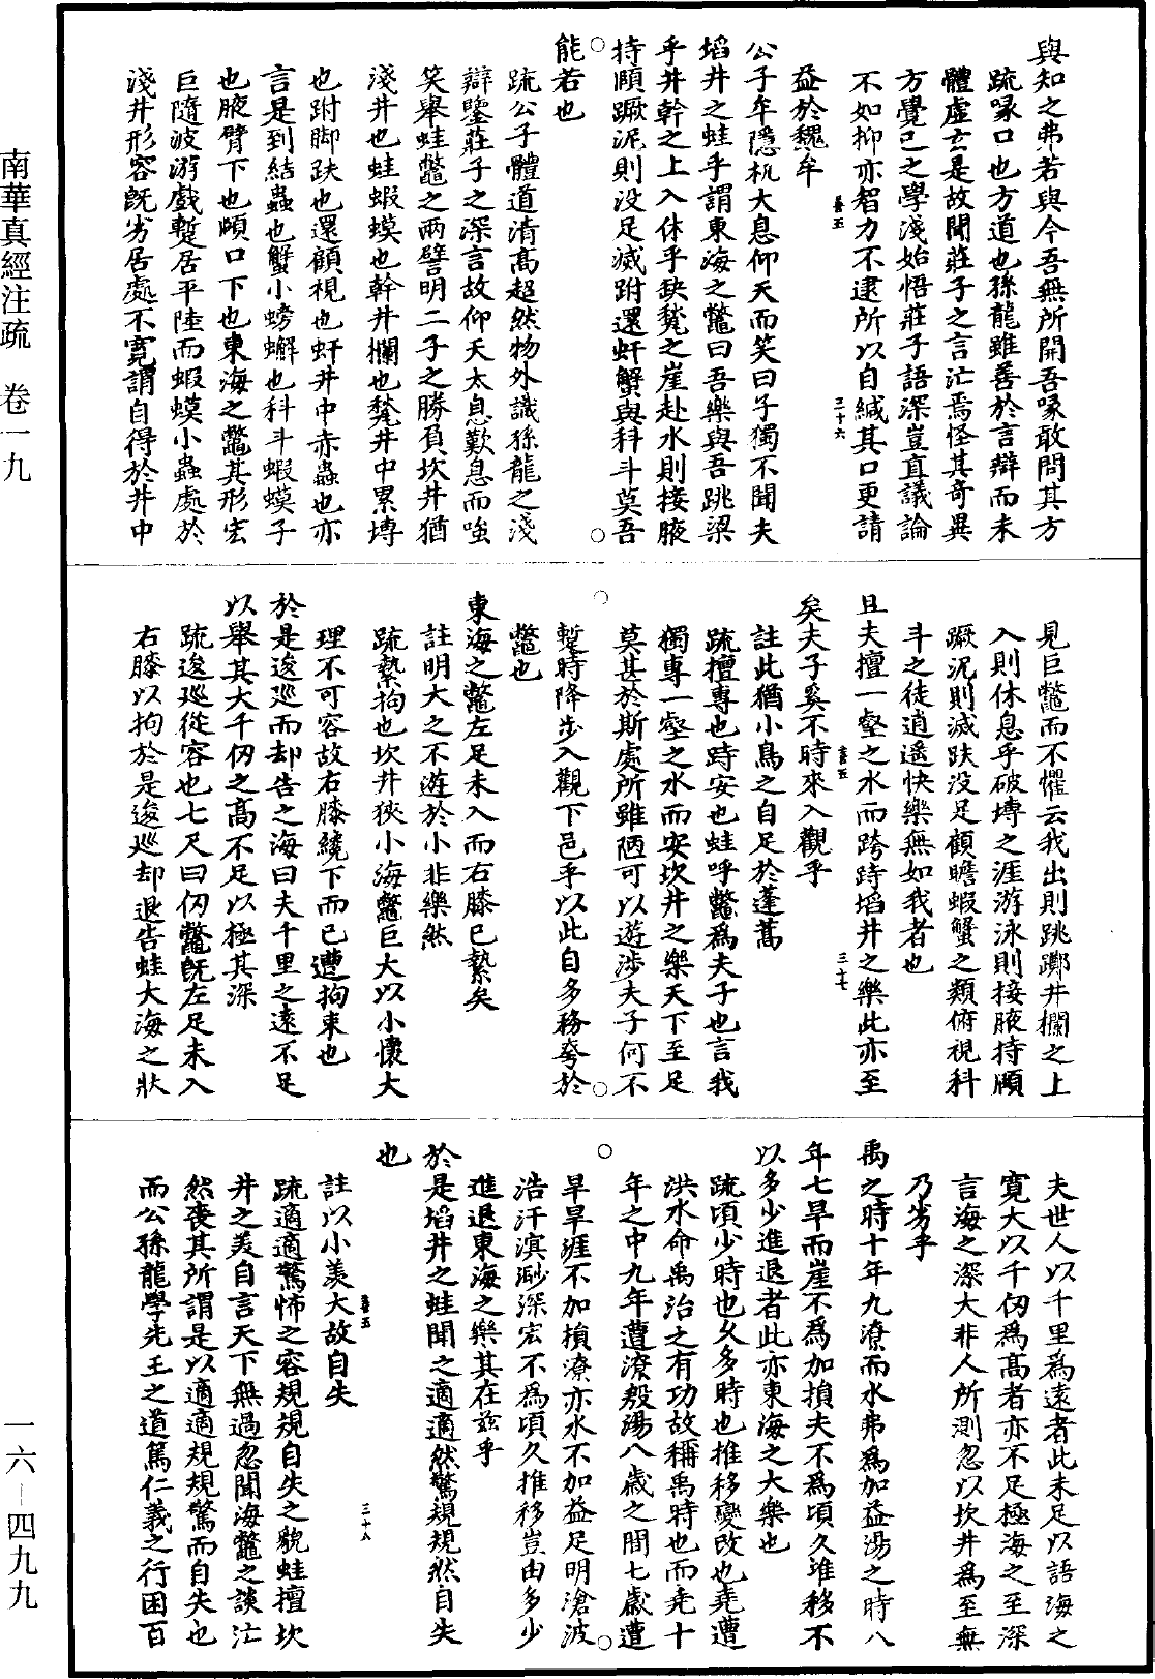 與知之弗若與今吾無所開吾喙敢問其方
疏喙口也方道也孫龍雖善於言辯而未
體虛玄是故聞莊子之言汒焉怪其奇異
方覺己之學淺始悟莊子語深豈直議論
不如抑亦智力不逮所以自緘其口更請
益於魏牟
三十六
公子牟隱机大息仰天而笑曰子獨不聞夫
埳井之蛙乎謂東海之鼈曰吾樂與吾跳梁
乎井幹之上入休乎缺甃之崖赴水則接腋
持頤蹶泥則没足滅跗還虷蟹與科斗莫吾
能若也
疏公子體道清高超然物外識孫龍之淺
辯鑒莊子之深言故仰天太息歎息而嗤
笑舉蛙鼈之兩譬明二子之勝負坎井猶
淺井也蛙蝦蟆也幹井欄也甃井中累塼
也跗脚趺也還顧視也虷井中赤蟲也亦
言是到結蟲也蟹小螃蠏也科斗蝦蟆子
也腋臂下也頤口下也東海之鼈其形宏
巨隨波游戲蹔居平陸而蝦蟆小蟲處於
淺井形容既劣居處不寬謂自得於井中
見巨鼈而不懼云我出則跳躑井欄之上
入則休息乎破塼之涯游泳則接腋持頤
蹶泥則滅趺没足顧瞻蝦蟹之類俯視科
斗之徒逍遥快樂無如我者也
且夫擅一壑之水而跨跱埳井之樂此亦至
矣夫子奚不時來入觀乎
三十七
註此猶小鳥之自足於蓬蒿
疏擅專也跱安也蛙呼鼈爲夫子也言我
獨專一壑之水而安坎井之樂天下至足
莫甚於斯處所雖陋可以遊涉夫子何不
蹔時降步入觀下邑乎以此自多務夸於
鼈也
東海之鼈左足未入而右膝已縶矣
註明大之不遊於小非樂然
疏縶拘也坎井狹小海鼈巨大以小懷大
理不可容故右膝纔下而已遭拘束也
於是逡巡而却告之海曰夫千里之遠不足
以舉其大千仞之高不足以極其深
疏逡巡從容也七尺曰仞鼈既左足未入
右膝以拘於是逡巡却退告蛙大海之狀
夫世人以千里爲遠者此未足以語海之
寬大以千仞爲高者亦不足極海之至深
言海之深大非人所測忽以坎井爲至無
乃劣乎
禹之時十年九潦而水弗爲加益湯之時八
年七旱而崖不爲加損夫不爲頃久推移不
以多少進退者此亦東海之大樂也
疏頃少時也久多時也推移變改也堯遭
洪水命禹治之有功故稱禹時也而堯十
年之中九年遭潦殷湯八歲之間七歲遭
旱旱涯不加損潦亦水不加益足明滄波
浩汗溟渺深宏不爲頃久推移豈由多少
進退東海之樂其在茲乎
於是埳井之蛙聞之適適然驚規規然自失
也
註以小羨大故自失
三十八
疏適適驚怖之容規規自失之貌蛙擅坎
井之美自言天下無過忽聞海鼈之談汒
然喪其所謂是以適適規規驚而自失也
而公孫龍學先王之道篤仁義之行困百
南華真經注疏 卷一九
一六-四九九